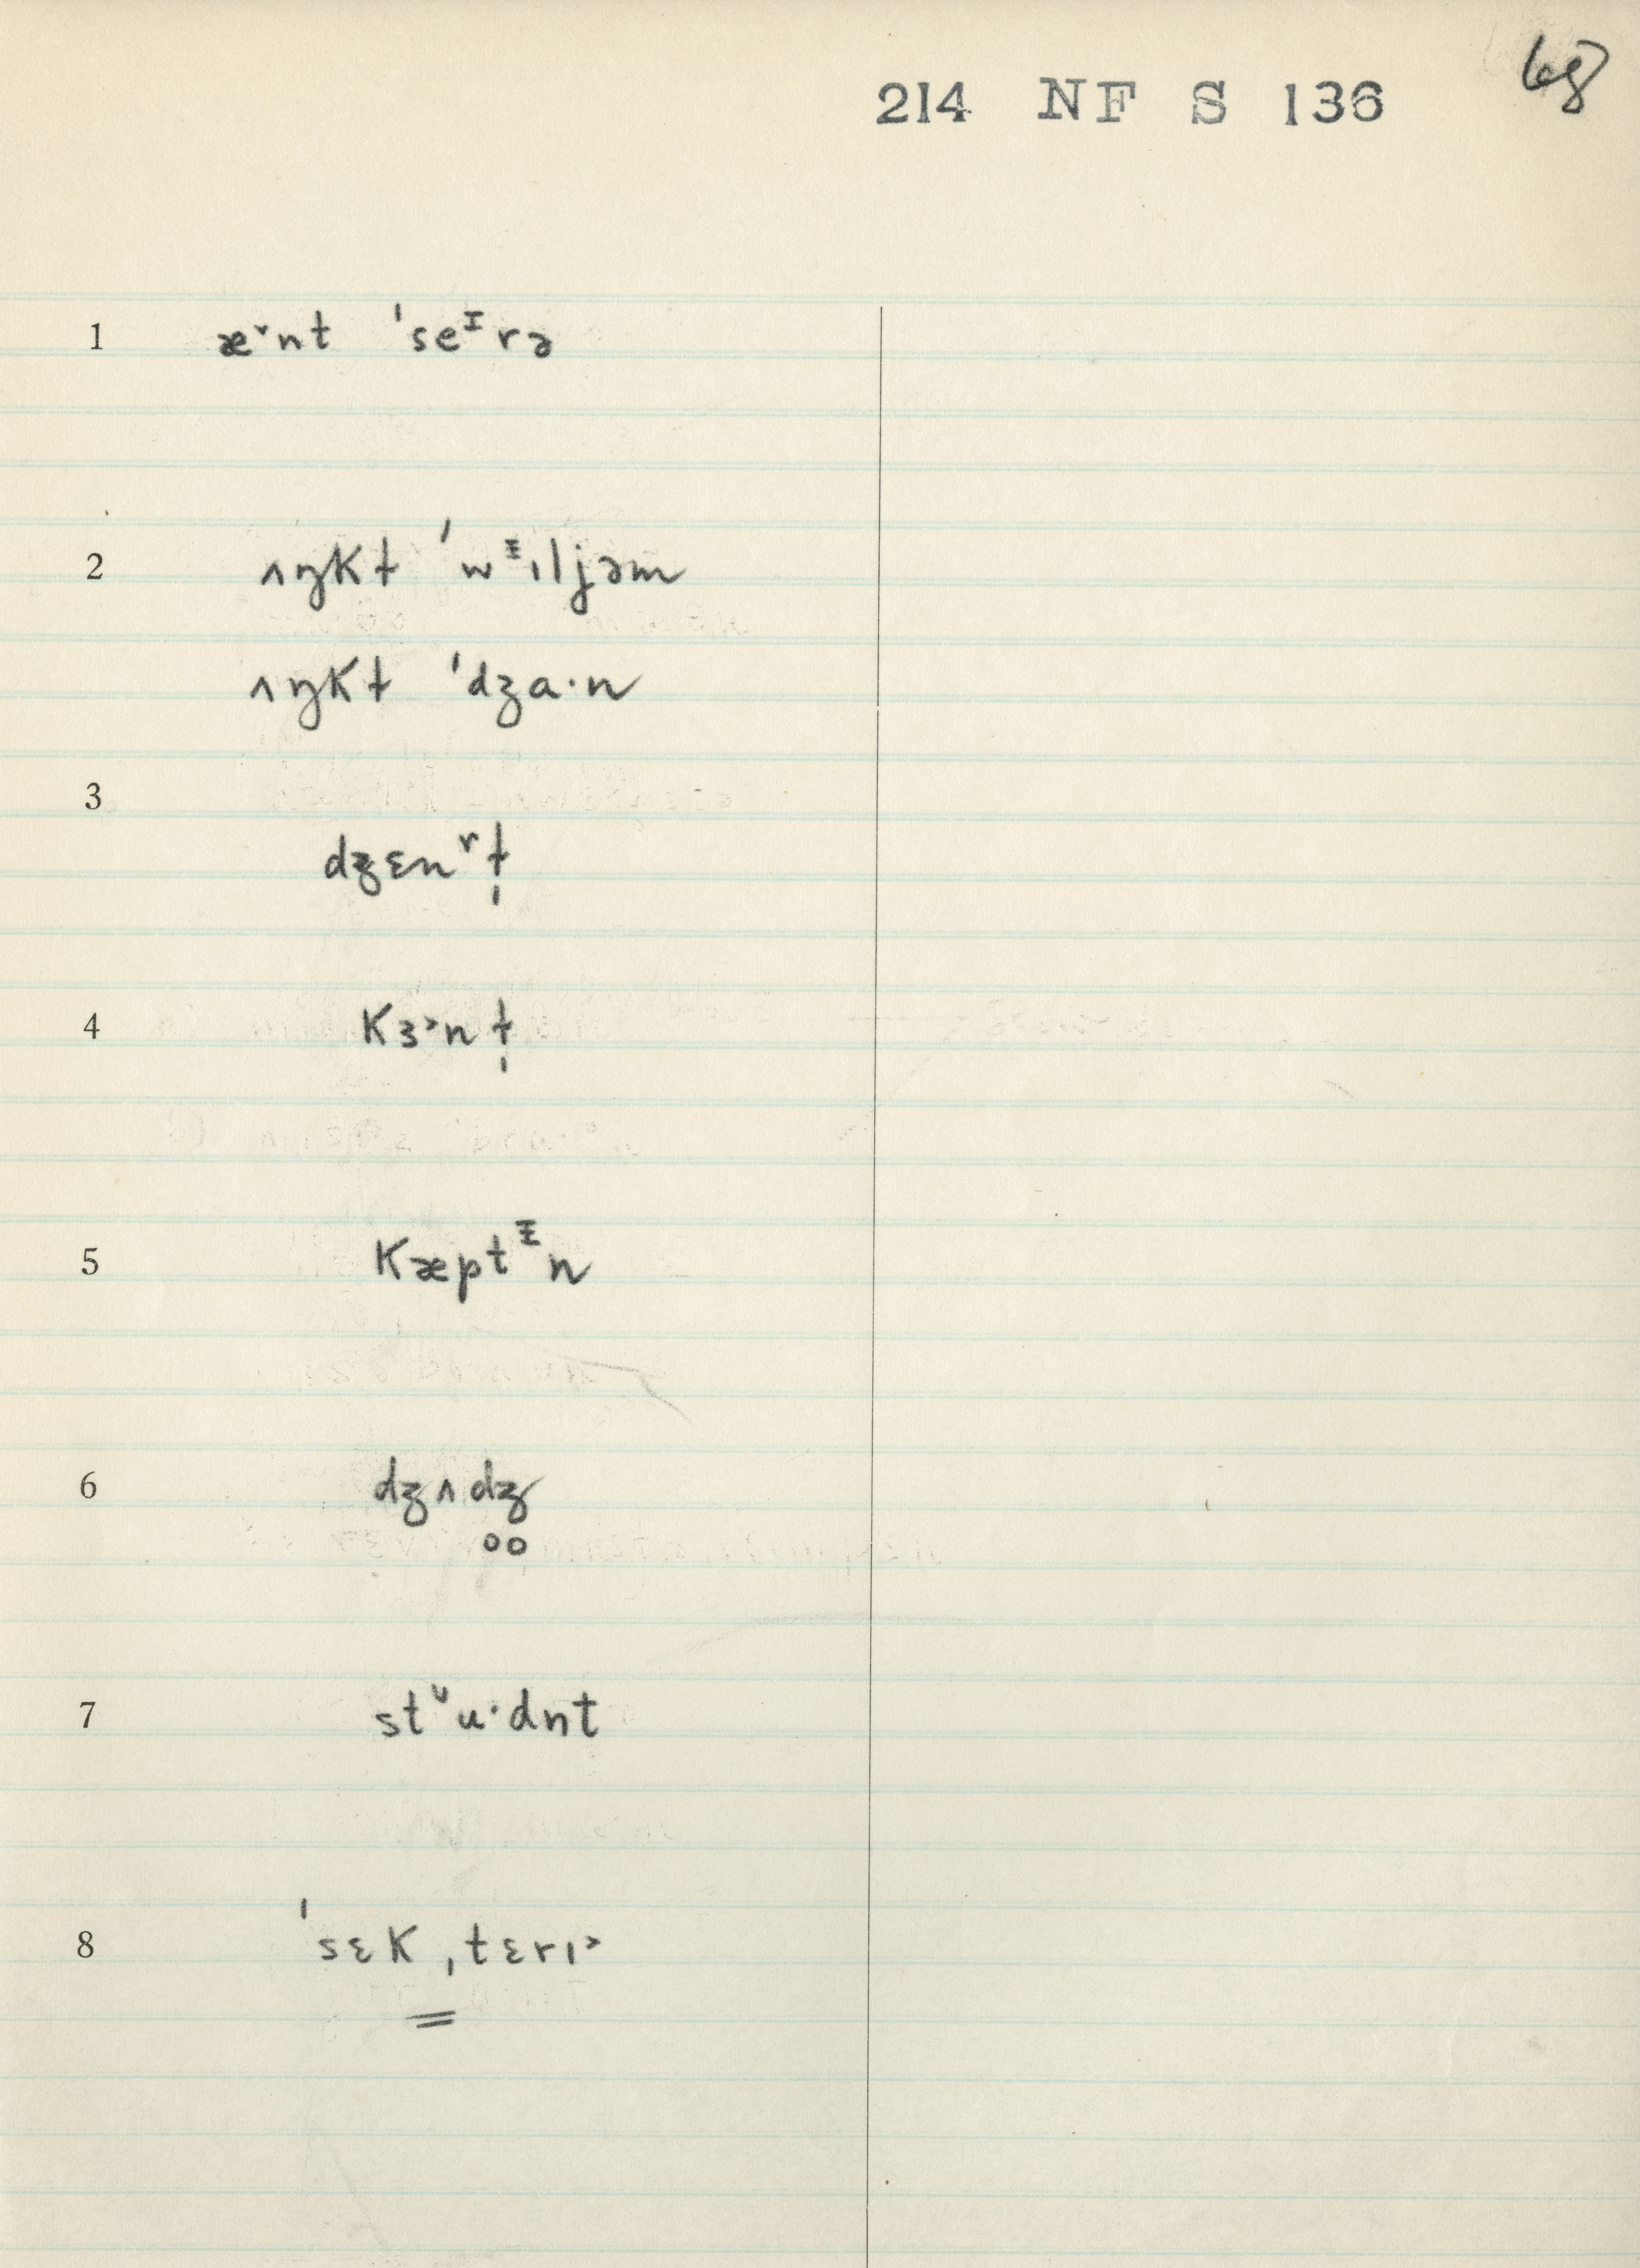 68
214 NF S 136
1 æ˅nt ˈseᶦrə
2 ʌŋkɫ ˈwᵻɪljəm
ʌŋkɫ ˈdʒa·n
3
dʒɛnʳɫ̩
4 kɜ˃nɫ̩
5 kæptᵻn
6 dʒʌd̥ʒ̊
7 stᶸu·dnt
8 ˈsɛkˌtɛrɪ˃
=